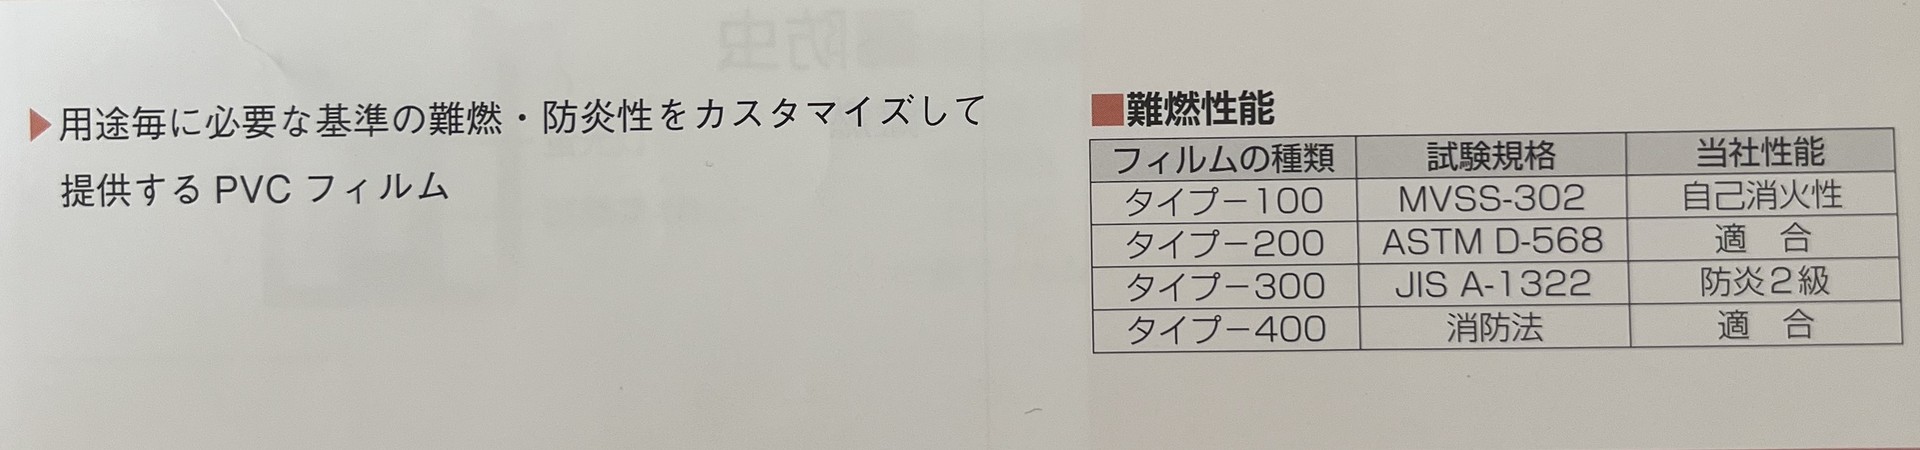 ▶用途毎に必要な基準の難燃・防炎性をカスタマイズして
提供する PVC フィルム
■難燃性能
フィルムの種類 試験規格 当社性能
タイプ－100 MVSS-302 自己消火性
タイプ－200 ASTM D-568 適　合
タイプ－300 JIS A-1322 防炎２級
タイプ－400 消防法 適　合